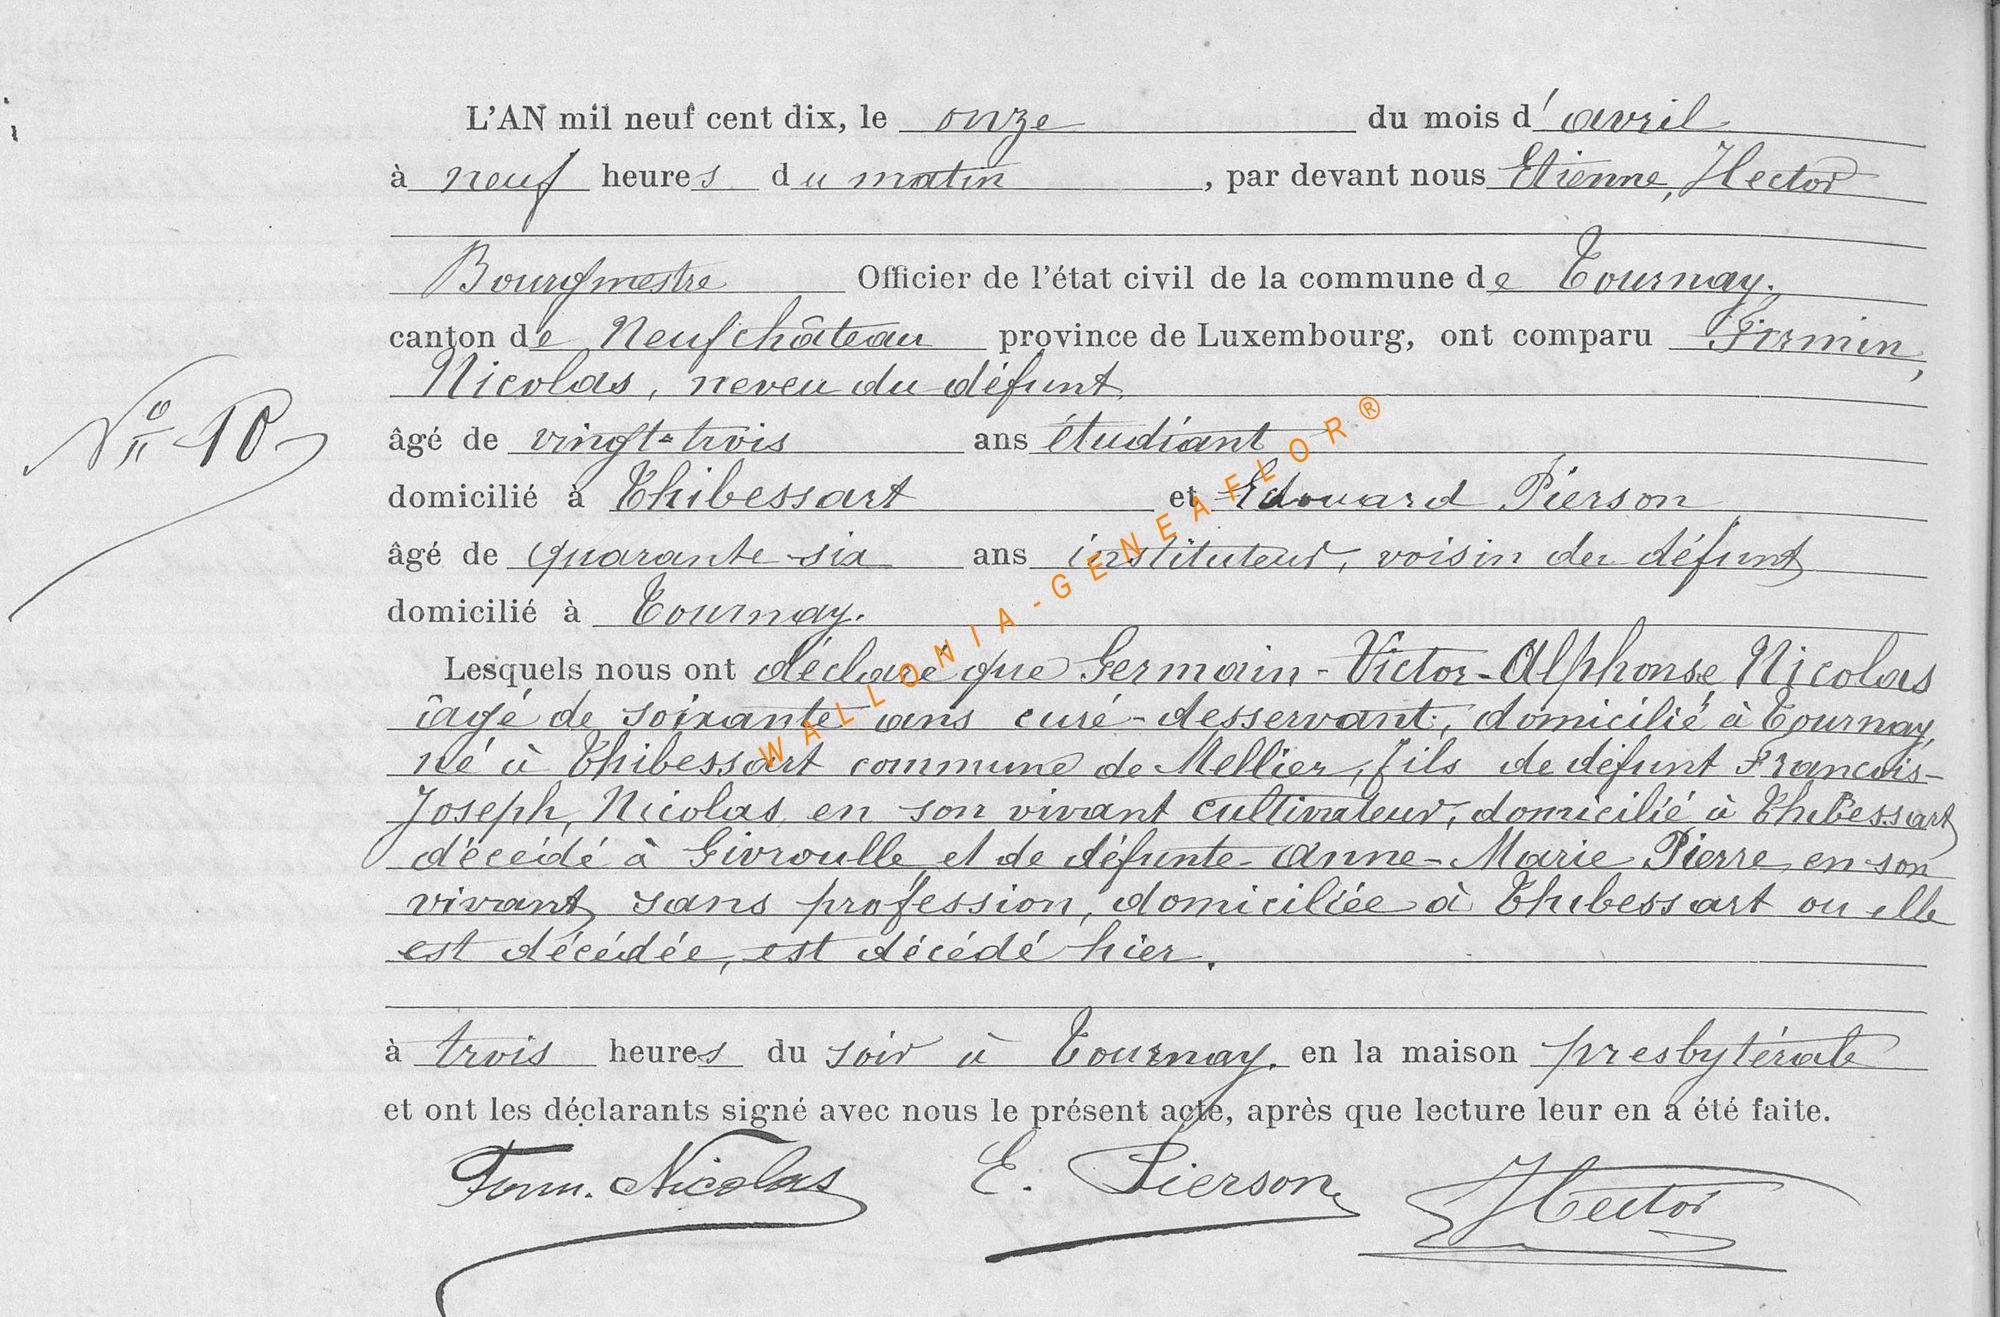 L'AN mil neuf cent dix, le onze du mois d'avril
à neuf heures du matin, par devant nous Etienne, Hector
Bourgmestre Officier de l'état civil de la commune de Tournay,
canton de Neufchâteau province de Luxembourg, ont comparu Firmin,
Nicolas, neveu du défunt,
N° 10
âgé de vingt-trois ans étudiant
domicilié à Thibessart et Edouard Pierson
âgé de quarante-six ans instituteur, voisin du défunt
domicilié à Tournay.
Lesquels nous ont déclaré que Germain-Victor-Alphonse Nicolas
âgé de soixante ans curé-desservant, domicilié à Tournay,
né à Thibessart commune de Mellier, fils de défunt François-
Joseph, Nicolas, en son vivant cultivateur, domicilié à Thibessart
décédé à Givroulle, et de défunte Anne-Marie Pierre, en son
vivant, sans profession, domiciliée à Thibessart ou elle
est décédée, est décédé hier.
à trois heures du soir à Tournay. en la maison presbytérale
et ont les déclarants signé avec nous le présent acte, après que lecture leur en a été faite.
Firm. Nicolas E. Pierson Hector
WALLONIA-GENEAFLOR®